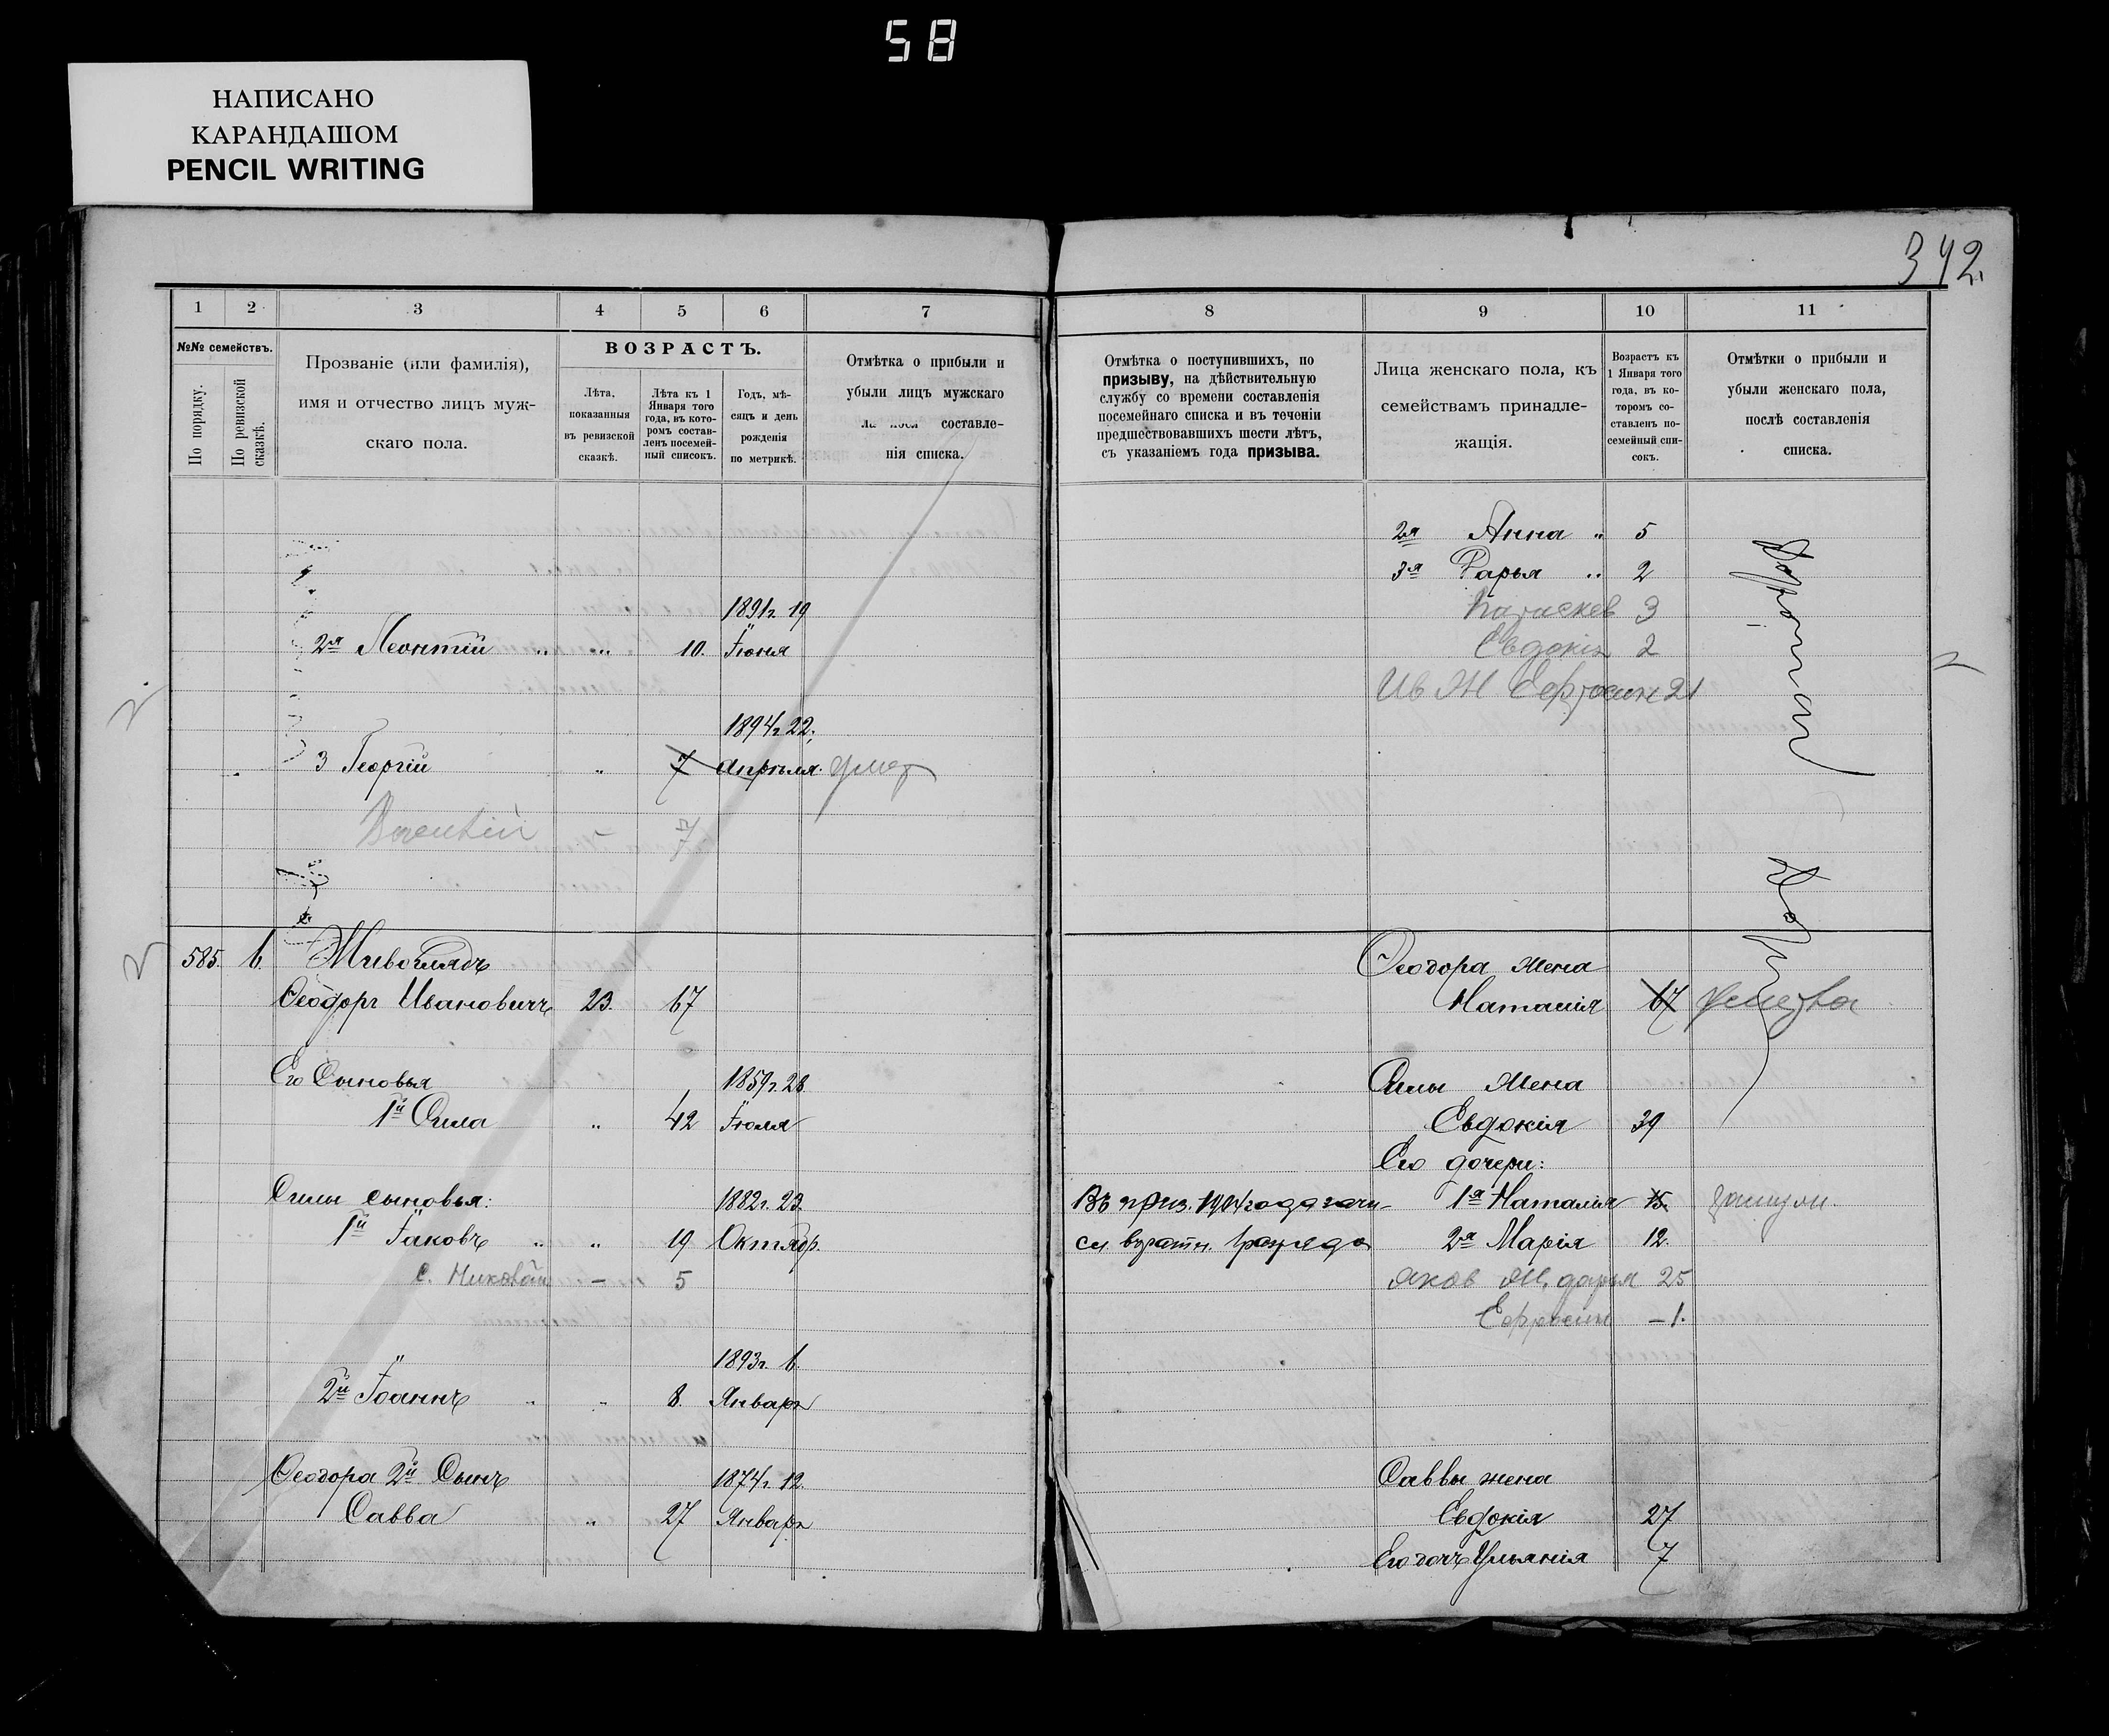 58
НАПИСАНО
КАРАНДАШОМ
PENCIL WRITING
342.
1 2 3 4 5 6 7
№№ семействъ.
По порядку.
По ревизской сказкѣ.
Прозваніе (или фамилія),
имя и отчество лицъ муж-
скаго пола.
ВОЗРАСТЪ.
Лѣта,
показанныя
въ ревизской
сказкѣ.
Лѣта къ 1
Января того
года, въ кото-
ромъ состав-
ленъ посемей-
ный списокъ.
Годъ, мѣ-
сяцъ и день
рожденія
по метрикѣ.
Отмѣтка о прибыли и
убыли лицъ мужскаго
составле-
нія списка.
1891г. 19
2й Леонтій " " 10. Іюня
1894г. 22.
3 Георгій " 7 Апрѣля. умер
– 7
585. 6. Живоглядъ
Ѳеодоръ Ивановичъ 23. 67
Его Сыновья 1859г. 28
1й Сила " 42 Іюля
Силы сыновья: 1882г. 23.
1й Іаковъ " " 19 Октябр.
с. Николай – 5
1893г. 6.
2й Іоаннъ " " 8. Январ
Ѳеодора 2й Сынъ 1874г. 12.
Савва " 27 Январ
8 9 10 11
Отмѣтка о поступившихъ, по
призыву, на дѣйствительную
службу со времени составленія
посемейнаго списка и въ теченіи
предшествовавшихъ шести лѣтъ,
съ указаніемъ года призыва.
Лица женскаго пола, къ
семействамъ принадле-
жащія.
Возрастъ къ
1 Января того
года, въ ко-
торомъ со-
ставленъ по-
семейный спи-
сокъ.
Отмѣтки о прибыли и
убыли женскаго пола,
послѣ составленія
списка.
2я Анна " 5
3я Дарья " 2
Параскев 3
Евдокія 2
Ив Ж Ефросин 21
Ѳеодора жена
Наталія 67 умерла
Силы Жена
Евдокія 39
Его дочери:
Въ приз. 1904 года зачи- 1я Наталія 15. замуж.
сл. въ ратн. 1 разряда 2я Марія 12.
Яков Ж, дарья 25
Ефросин – 1.
Саввы жена
Евдокія 27
Его дочь Ульянія 7